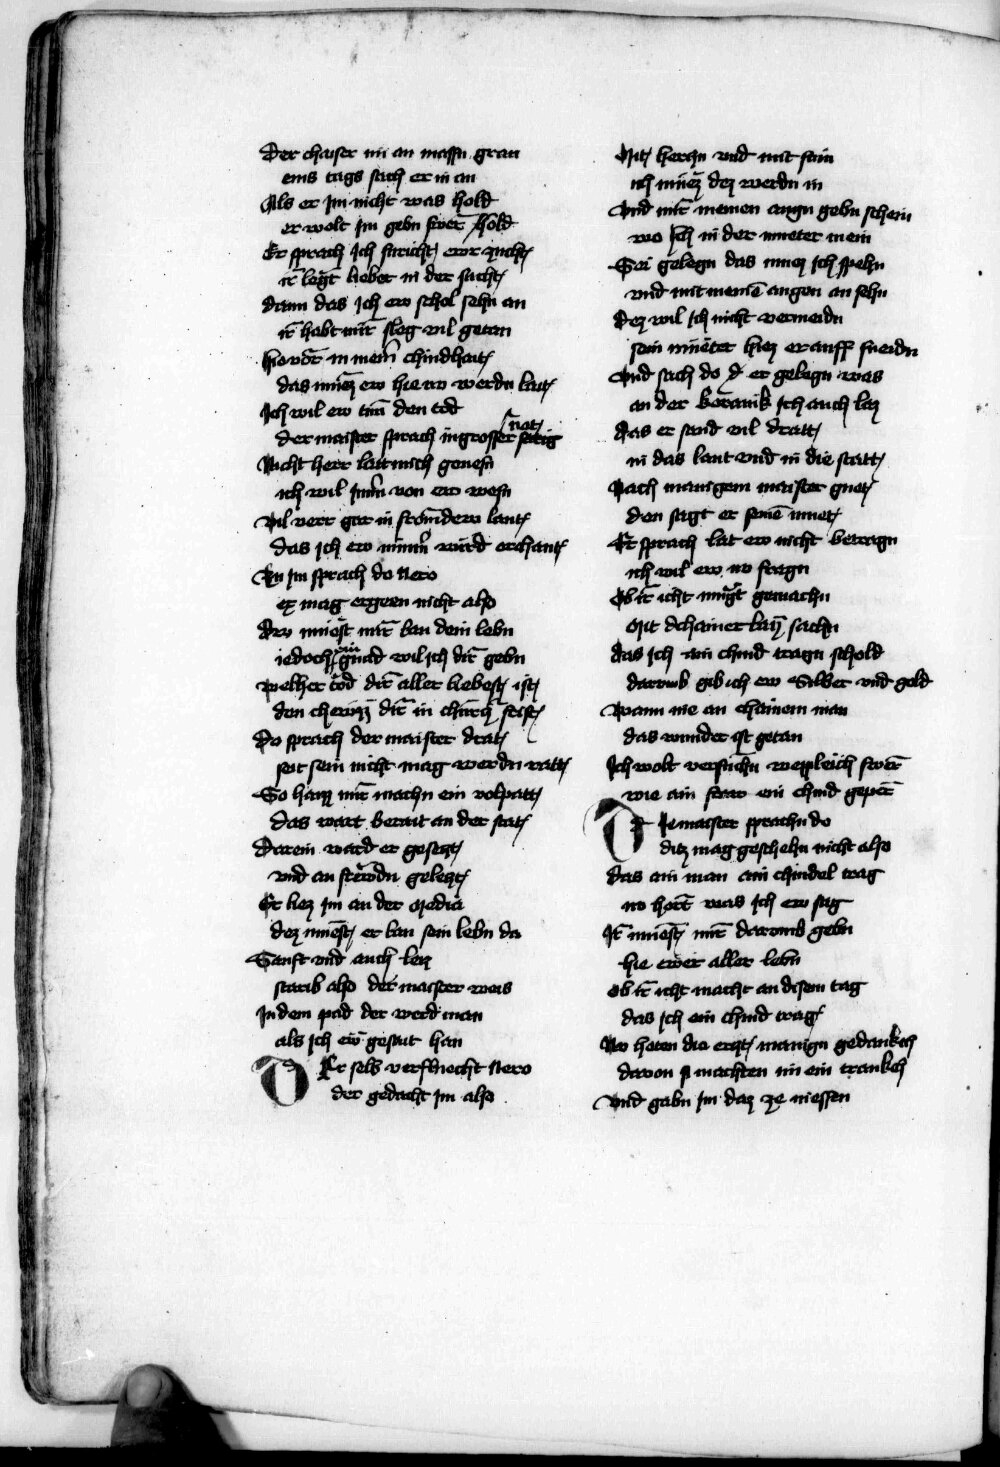 Der chaiser im an massn gran
eins tags sach er in an
Als er Im nicht was hold
er wolt Im gebn swern sold
Er sprach Ich furicht ewr zucht
ir legt lieber in der sucht
dann das Ich ew schol sehn an
ir habt mir sleg vil getan
hievor in mein chindhait
das muez ew hie nv werdn lait
Ich wil ew tun den tod
der maister sprach in grosser not
Nicht herr lat mich genesn
ich wil Imm von ew wesn
vil verr gar in fromdew lant
das Ich ew nimm wird erchant
Zu Im sprach do Nero
ez mag ergeen nicht also
Dw muest mir lan dein lebn
iedoch ain gnad wil ich dir gebn
welher tod dir aller liebest ist
den chewzz dir in churtz frist
Do sprach der maister drat
seit sein nicht mag werdn rat
So haizz mir machn ein volpatt
das wart berait an der stat
Darein ward er gesetzt
vnd an frewdn geletzt
Er liez Im an der Media
dez muest er lan sein lebn da
Sanft vnd auch leis
starib also der maister weis
In dem pad der werd man
als ich ew gesait han
Der selb versmecht Nero
der gedacht Im also
Mit herczn vnd mit sin
ich muez dez werdn in
Vnd mit meinen augn gebn schein
wo Ich in der mueter mein
Sei gelegn das muez Ich spehn
vnd mit meinen augen an sehn
dez wil Ich nicht vermeidn
sein mueter hiez er auff sneidn
Vnd sach do er gelegn was
an der koranik Ich auch las
Das er sand vil dratt
in das lant vnd in die statt
Nach manigem maister guet
den sagt er seinen muet
Er sprach lat ew nicht betragn
ich wil ew nv fragn
Ob ir icht mugt gemachn
Mit dchainer lay sachn
das Ich ain chind tragn schold
darumb gib ich ew Silber vnd gold
Wann nie an chainem man
das wunder ist getan
Ich wolt versuchn
wie ain fraw ein chind gepert
Die maister sprachn do
ditz mag geschehn nicht also
das ain man ain chindel trag
nv hort was Ich ew sag
Ir muest mir darumb gebn
hie ewer aller lebn
Ob ir icht macht an disem tag
das Ich ein chind trag
Nv heten die erzt manign gedankch
davon si machten im ein trankch
Vnd gabn Im daz ze niessen